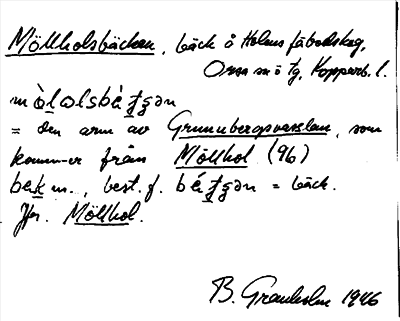 Möllholsbäcken, bäck å Holens fäbodskog,
Orsa sn o tg, Kopparb. l.
= den arm av Grunubergsvasslan, som
kommer från Möllhol (96)
bɛk m., best. f. = bäck.
Jfr. Möllhol.
B. Granholm 1946